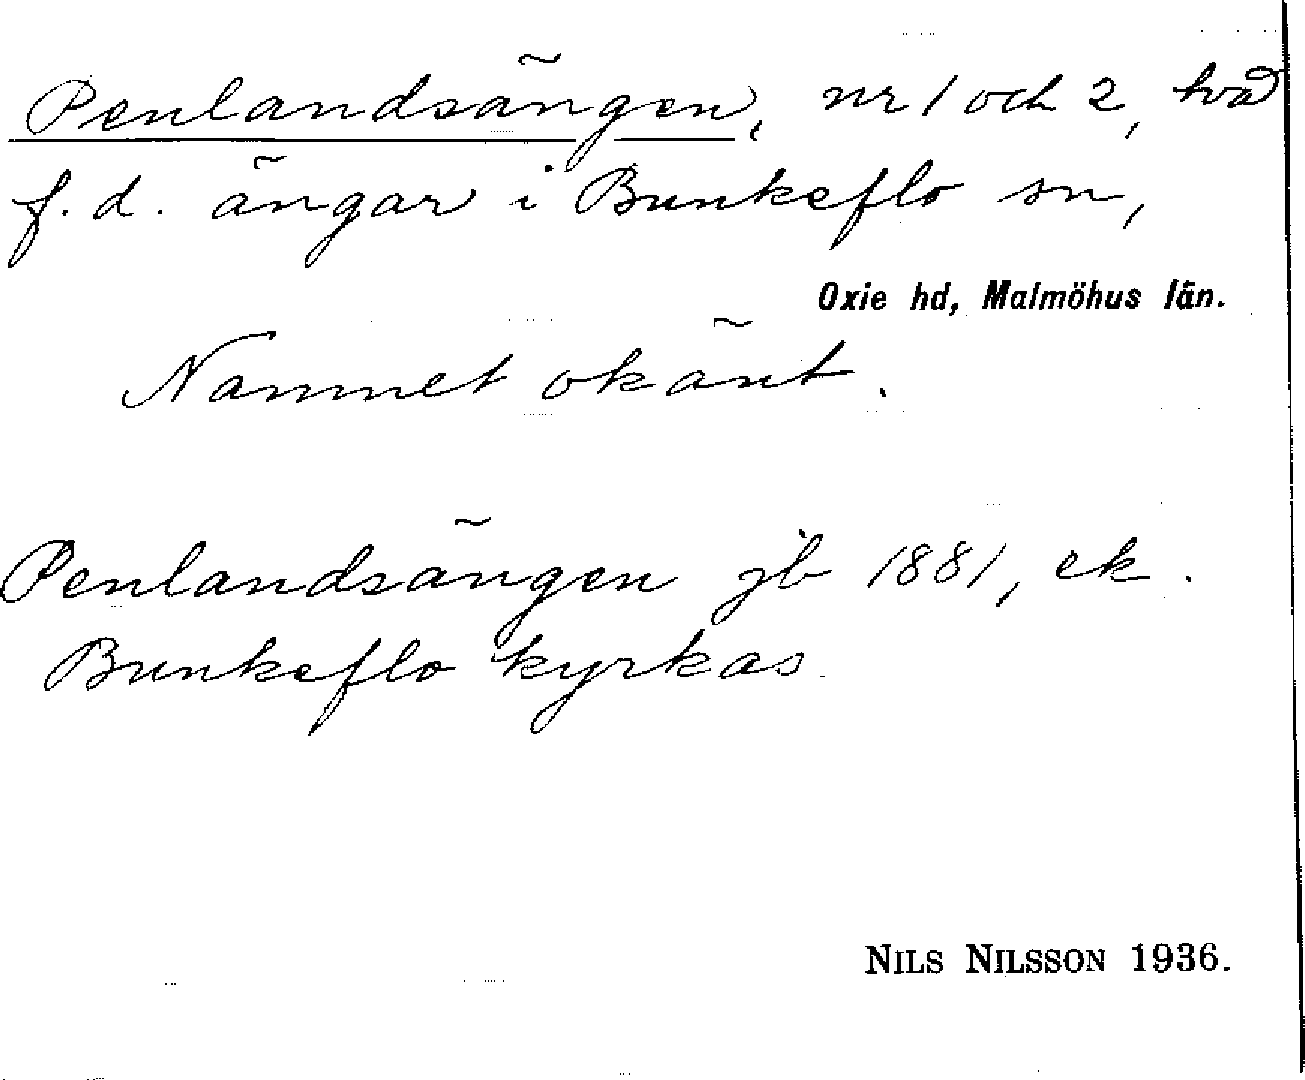 Penlandsängen, nr 1 och 2, två
f.d. ängar i Bunkeflo sn,
Oxie hd, Malmöhus län.
Namnet okänt.
Penlandsängen jb 1881, ek.
Bunkeflo kyrkas
NILS NILSSON 1936.